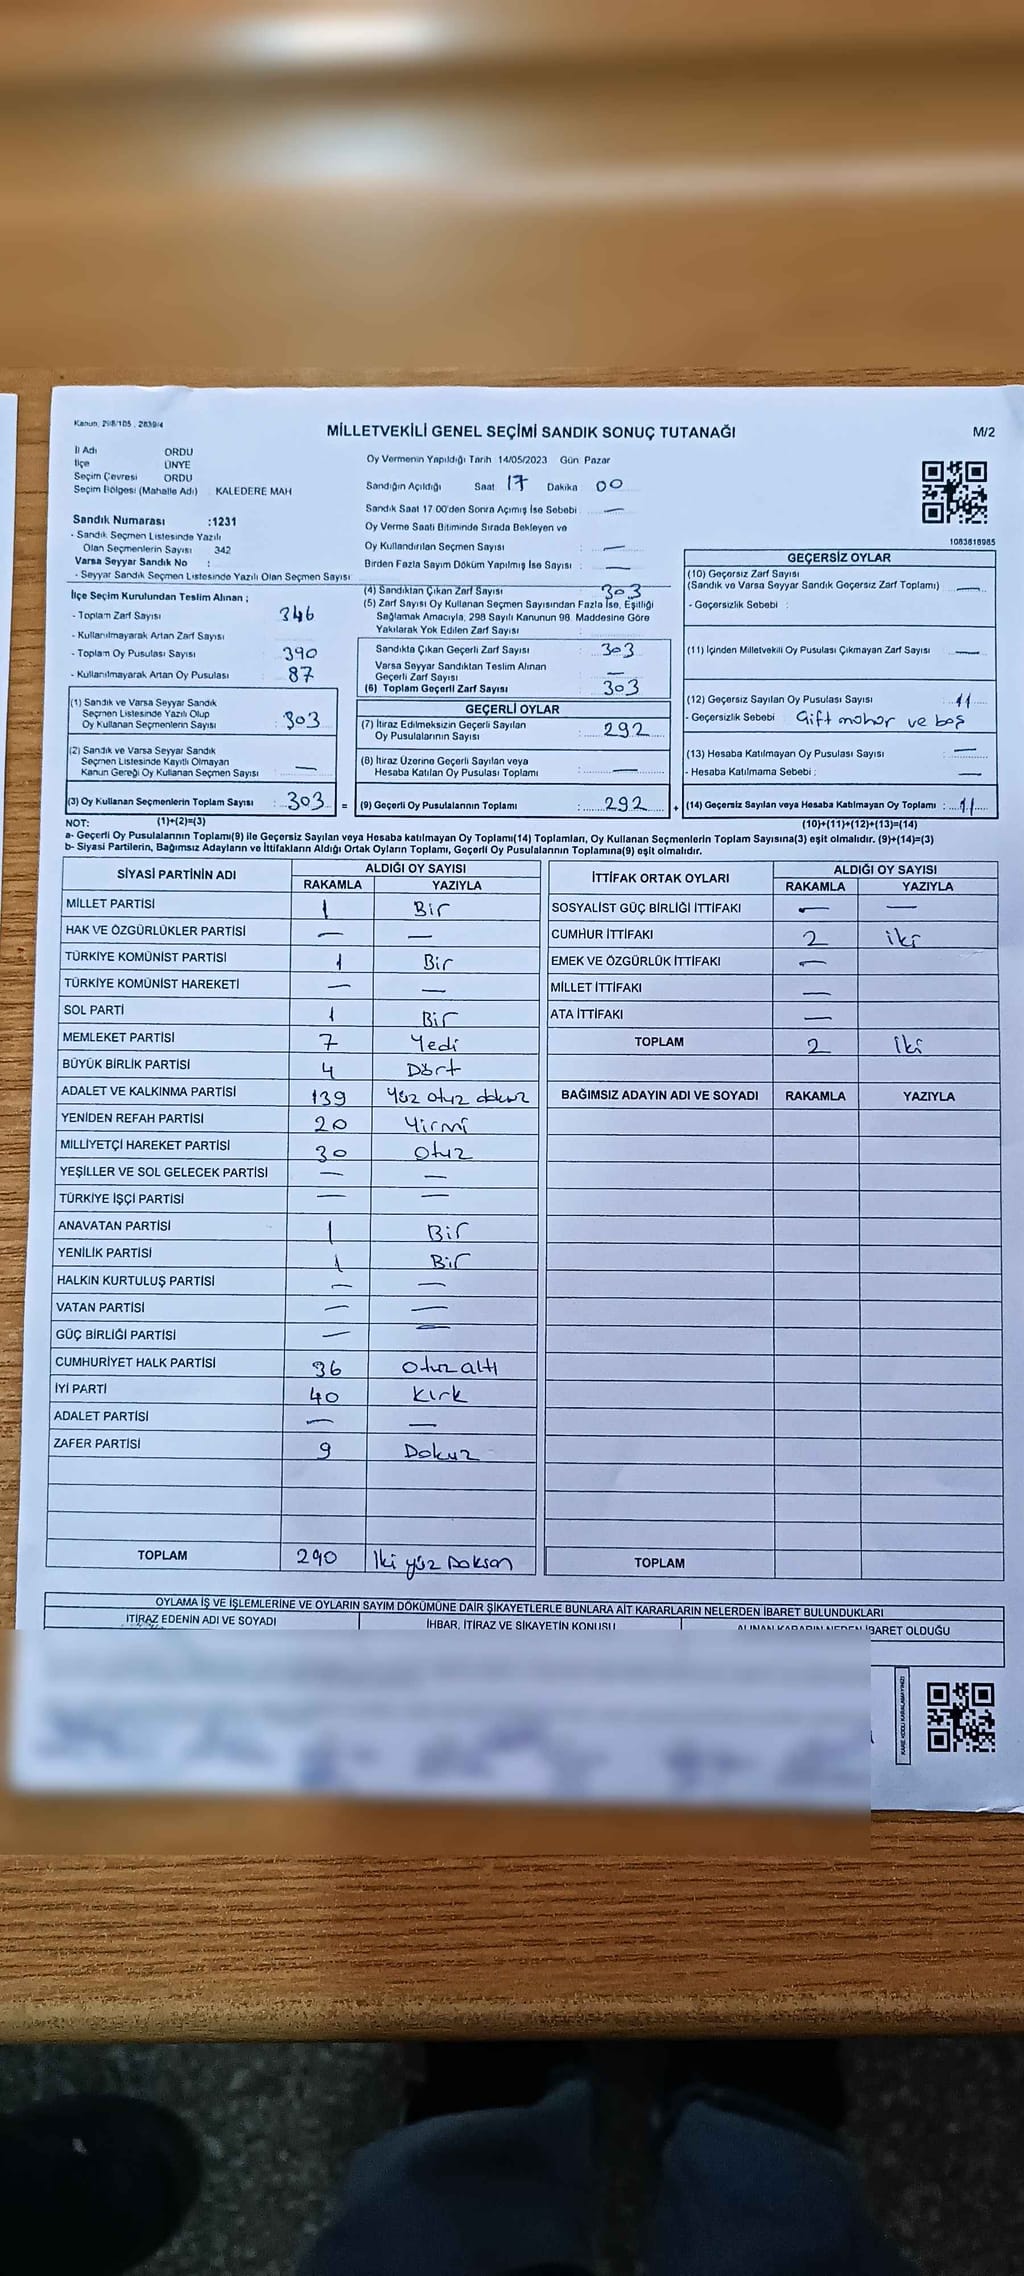 Kanun, 298/105 , 2839/4
MİLLETVEKİLİ GENEL SEÇİMİ SANDIK SONUÇ TUTANAĞI
M/2
İl Adı ORDU
İlçe ÜNYE
Seçim Çevresi ORDU
Seçim Bölgesi (Mahalle Adı) KALEDERE MAH
Sandık Numarası :1231
- Sandık Seçmen Listesinde Yazılı
Olan Seçmenlerin Sayısı 342
Varsa Seyyar Sandık No :
- Seyyar Sandık Seçmen Listesinde Yazılı Olan Seçmen Sayısı
İlçe Seçim Kurulundan Teslim Alınan ;
- Toplam Zarf Sayısı : 346
- Kullanılmayarak Artan Zarf Sayısı :
- Toplam Oy Pusulası Sayısı : 390
- Kullanılmayarak Artan Oy Pusulası : 87
(1) Sandık ve Varsa Seyyar Sandık
Seçmen Listesinde Yazılı Olup
Oy Kullanan Seçmenlerin Sayısı : 303
(2) Sandık ve Varsa Seyyar Sandık
Seçmen Listesinde Kayıtlı Olmayan
Kanun Gereği Oy Kullanan Seçmen Sayısı : —
(3) Oy Kullanan Seçmenlerin Toplam Sayısı : 303 =
Oy Vermenin Yapıldığı Tarih 14/05/2023 Gün Pazar
Sandığın Açıldığı Saat 17 Dakika 00
Sandık Saat 17.00'den Sonra Açımış İse Sebebi : —
Oy Verme Saati Bitiminde Sırada Bekleyen ve
Oy Kullandırılan Seçmen Sayısı : —
Birden Fazla Sayım Döküm Yapılmış İse Sayısı : —
(4) Sandıktan Çıkan Zarf Sayısı : 303
(5) Zarf Sayısı Oy Kullanan Seçmen Sayısından Fazla İse, Eşitliği
Sağlamak Amacıyla, 298 Sayılı Kanunun 98. Maddesine Göre
Yakılarak Yok Edilen Zarf Sayısı :
Sandıkta Çıkan Geçerli Zarf Sayısı : 303
Varsa Seyyar Sandıktan Teslim Alınan
Geçerli Zarf Sayısı : —
(6) Toplam Geçerli Zarf Sayısı : 303
GEÇERLİ OYLAR
(7) İtiraz Edilmeksizin Geçerli Sayılan
Oy Pusulalarının Sayısı : 292
(8) İtiraz Üzerine Geçerli Sayılan veya
Hesaba Katılan Oy Pusulası Toplamı : —
(9) Geçerli Oy Pusulalarının Toplamı : 292 +
1083818985
GEÇERSİZ OYLAR
(10) Geçersiz Zarf Sayısı
(Sandık ve Varsa Seyyar Sandık Geçersiz Zarf Toplamı) : —
- Geçersizlik Sebebi :
(11) İçinden Milletvekili Oy Pusulası Çıkmayan Zarf Sayısı : —
(12) Geçersiz Sayılan Oy Pusulası Sayısı : 11
- Geçersizlik Sebebi : Çift mühür ve boş
(13) Hesaba Katılmayan Oy Pusulası Sayısı : —
- Hesaba Katılmama Sebebi : —
(14) Geçersiz Sayılan veya Hesaba Katılmayan Oy Toplamı : 11
NOT: (1)+(2)=(3) (10)+(11)+(12)+(13)=(14)
a- Geçerli Oy Pusulalarının Toplamı(9) ile Geçersiz Sayılan veya Hesaba katılmayan Oy Toplamı(14) Toplamları, Oy Kullanan Seçmenlerin Toplam Sayısına(3) eşit olmalıdır. (9)+(14)=(3)
b- Siyasi Partilerin, Bağımsız Adayların ve İttifakların Aldığı Ortak Oyların Toplamı, Geçerli Oy Pusulalarının Toplamına(9) eşit olmalıdır.
SİYASİ PARTİNİN ADI ALDIĞI OY SAYISI
RAKAMLA YAZIYLA
MİLLET PARTİSİ 1 Bir
HAK VE ÖZGÜRLÜKLER PARTİSİ — —
TÜRKİYE KOMÜNİST PARTİSİ 1 Bir
TÜRKİYE KOMÜNİST HAREKETİ — —
SOL PARTİ 1 Bir
MEMLEKET PARTİSİ 7 Yedi
BÜYÜK BİRLİK PARTİSİ 4 Dört
ADALET VE KALKINMA PARTİSİ 139 Yüz otuz dokuz
YENİDEN REFAH PARTİSİ 20 Yirmi
MİLLİYETÇİ HAREKET PARTİSİ 30 Otuz
YEŞİLLER VE SOL GELECEK PARTİSİ — —
TÜRKİYE İŞÇİ PARTİSİ — —
ANAVATAN PARTİSİ 1 Bir
YENİLİK PARTİSİ 1 Bir
HALKIN KURTULUŞ PARTİSİ — —
VATAN PARTİSİ — —
GÜÇ BİRLİĞİ PARTİSİ — —
CUMHURİYET HALK PARTİSİ 36 Otuz altı
İYİ PARTİ 40 Kırk
ADALET PARTİSİ — —
ZAFER PARTİSİ 9 Dokuz
TOPLAM 290 İki yüz Doksan
İTTİFAK ORTAK OYLARI ALDIĞI OY SAYISI
RAKAMLA YAZIYLA
SOSYALİST GÜÇ BİRLİĞİ İTTİFAKI — —
CUMHUR İTTİFAKI 2 iki
EMEK VE ÖZGÜRLÜK İTTİFAKI —
MİLLET İTTİFAKI —
ATA İTTİFAKI —
TOPLAM 2 İki
BAĞIMSIZ ADAYIN ADI VE SOYADI RAKAMLA YAZIYLA
TOPLAM
OYLAMA İŞ VE İŞLEMLERİNE VE OYLARIN SAYIM DÖKÜMÜNE DAİR ŞİKAYETLERLE BUNLARA AİT KARARLARIN NELERDEN İBARET BULUNDUKLARI
İTİRAZ EDENİN ADI VE SOYADI
İHBAR, İTİRAZ VE ŞİKAYETİN KONUSU
ALINAN KARARIN NEDEN İBARET OLDUĞU
KARE KODU KARALAMAYINIZ!